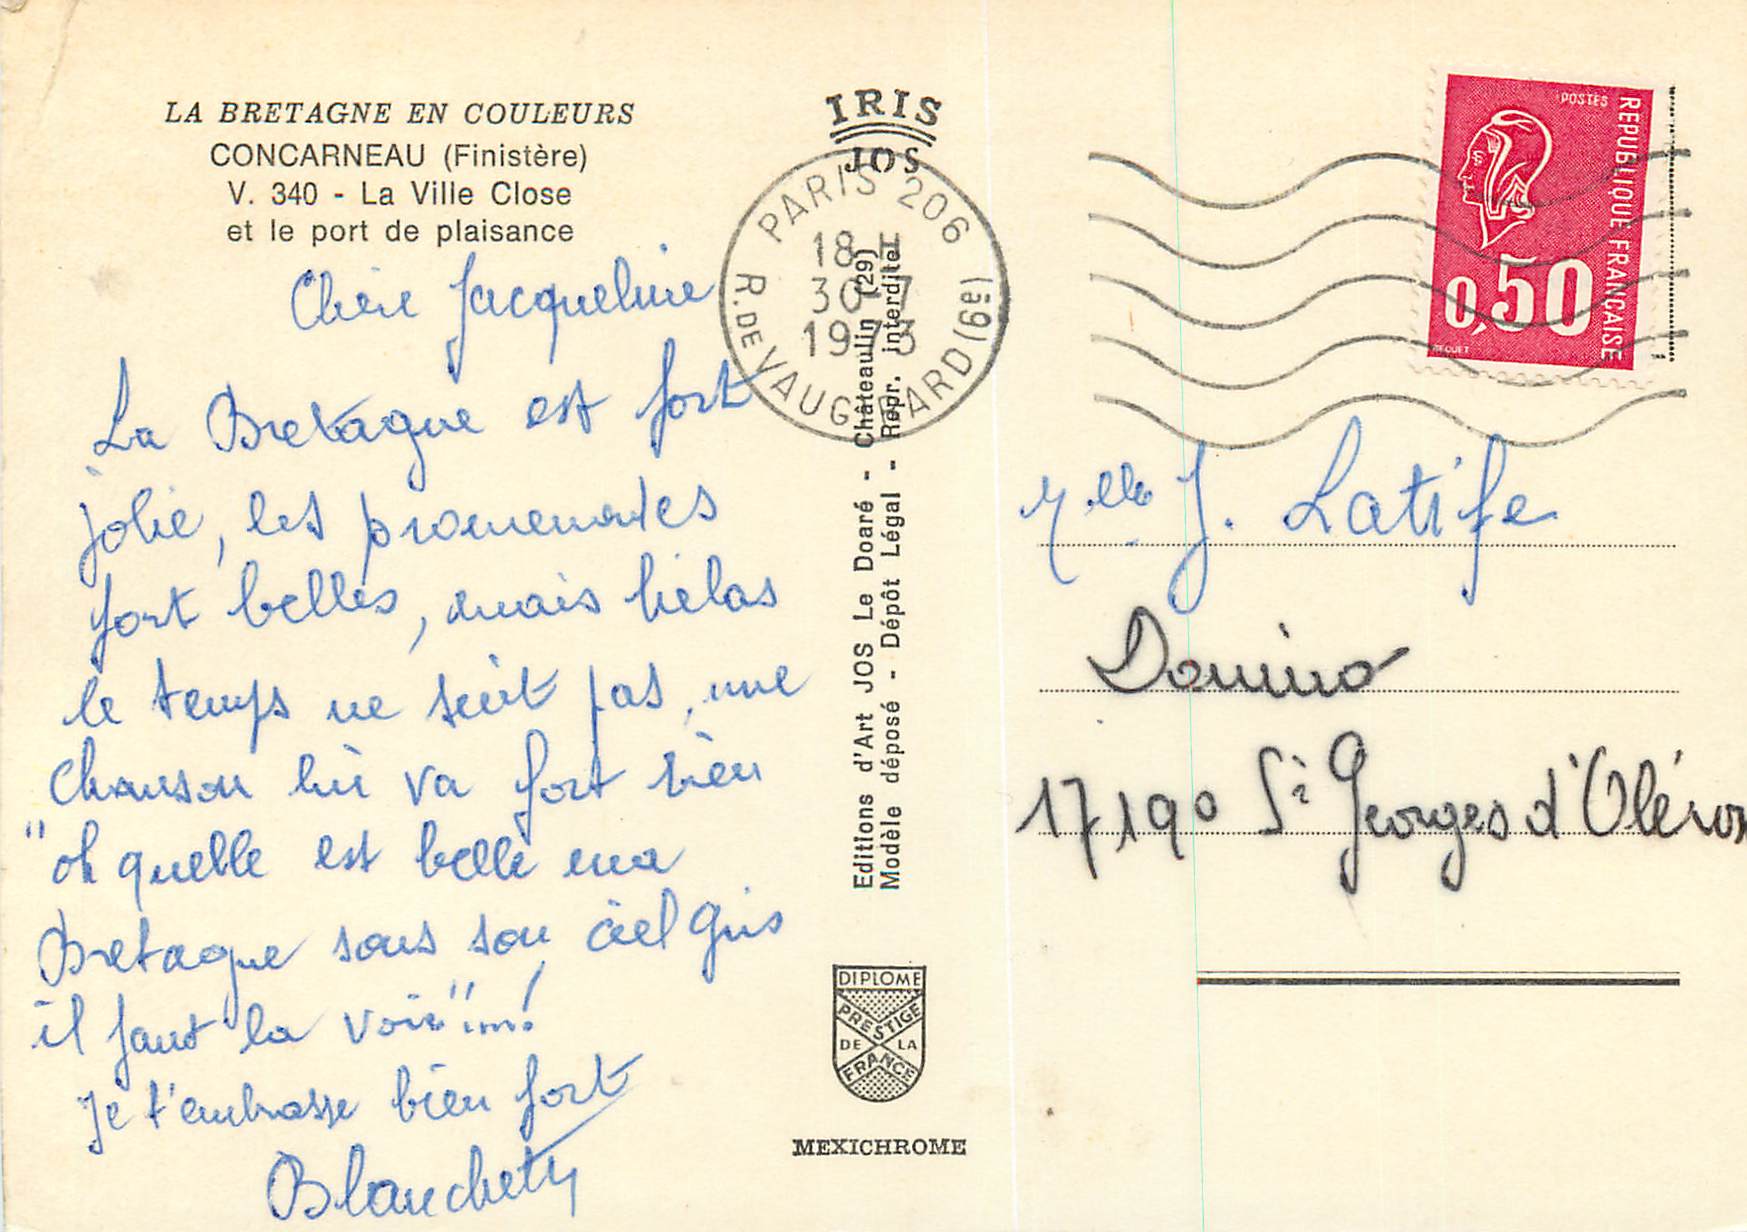 LA BRETAGNE EN COULEURS
CONCARNEAU (Finistère)
V. 340 - La Ville Close
et le port de plaisance
Chère Jacqueline
La Bretagne est fort
jolie, les promenades
fort belles, mais hélas
le temps ne suit pas, une
chanson lui va fort bien
"oh quelle est belle ma
Bretagne sous son ciel gris
il faut la voir"...!
Je t'embrasse bien fort
IRIS
JOS
PARIS 206
18 H
30-7
1973
R. DE VAUGIRARD (15E)
Editions d'Art JOS Le Doaré - Châteaulin (29)
Modèle déposé - Dépôt Légal - Repr. interdite
DIPLOME
PRESTIGE
DE LA
FRANCE
MEXICHROME
POSTES
REPUBLIQUE FRANCAISE
0,50
BEQUET
Melle J. Latife
Domino
17190 St Georges d'Oléron